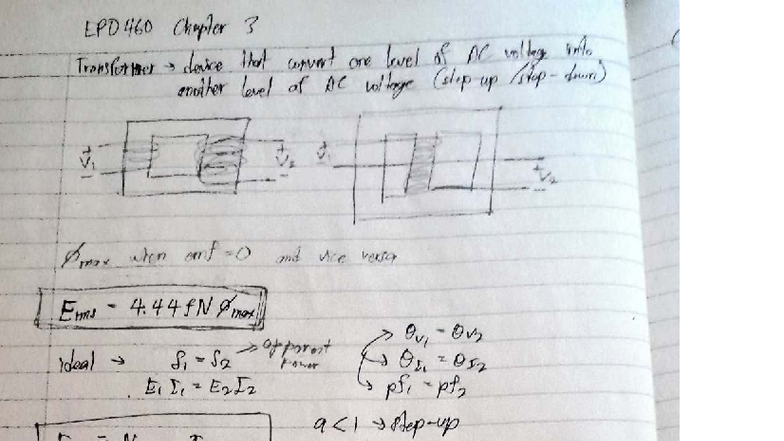 EPO460 Chapter 3
Transformer → device that convert one level of AC voltage into
another level of AC voltage (step-up /step-down)
+ V₁ - + V₂ - V₁ + V₂ -
φmax when emf = 0 and vice versa
Erms = 4.44fNφmax
ideal → S₁ = S₂ → apparent power
E₁I₁ = E₂I₂
θv₁ = θv₂
θI₁ = θI₂
pf₁ = pf₂
a < 1 → step-up